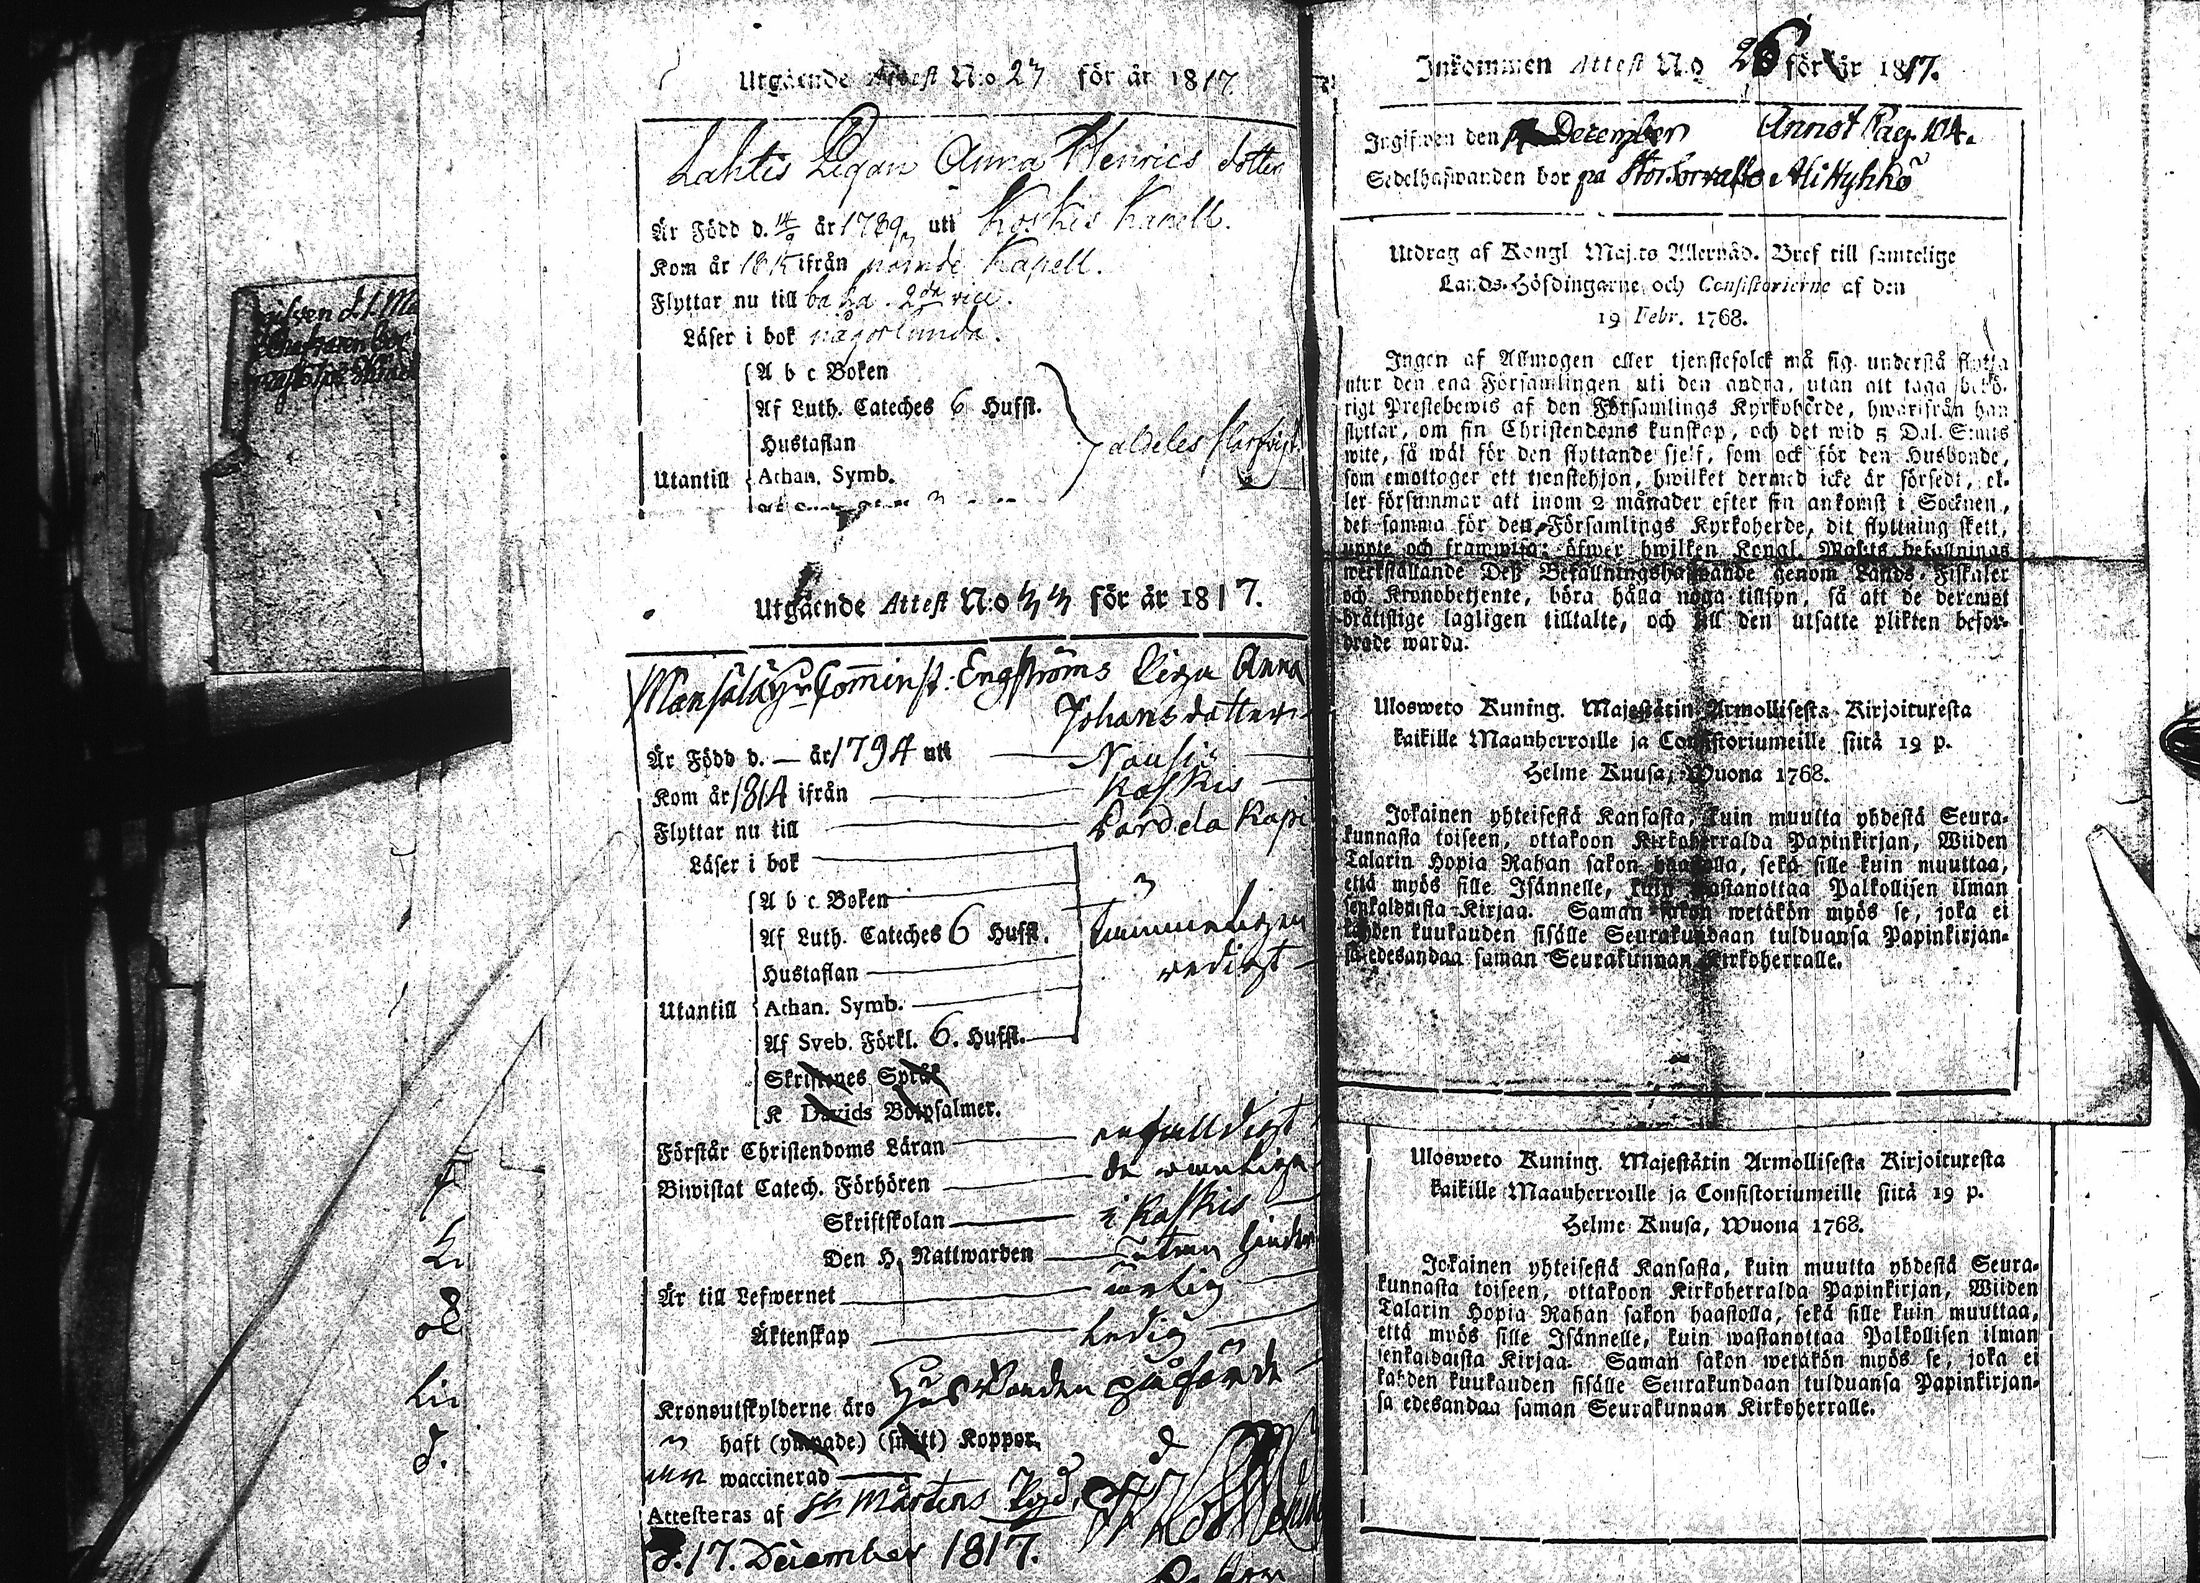 Utgående Attest N:o 27 för år 1817.
Lahtis Pigan Anna Henrics dotter
Är Född d. 14/9 år 1789 uti Koskis Kapell.
Kom år 1815 ifrån nämde Kapell.
Flyttar nu till baka
Läser i bok någorlunda.
A b c Boken
Af Luth. Cateches 6 Hufst.
Hustaflan
Utantill Athan. Symb.
Utgående Attest N:o 33 för år 1817.
Engströms Piga Anna
Johansdotter
Är Född d. — år 1794 uti Nousis
Kom år 1814 ifrån Koskis
Flyttar nu till
Läser i bok
A b c Boken
Af Luth. Cateches 6 Hufst.
Hustaflan
Utantill Athan. Symb.
Af Sveb. Förkl. 6. Hufst.
Skriftenes Språk
K Davids Botpsalmer.
Förstår Christendoms Läran enfalldigt
Biwistat Catech. Förhören
Skriftskolan i Koskis
Den H. Nattwarden utan hinder
Är till Lefwernet ärlig
Äktenskap ledig
Kronoutskylderne äro Husbonden påförde
haft (ympade) (smitt) Koppor.
waccinerad
Attesteras af St Mårtens
d. 17. December 1817.
Inkommen Attest N:o 26 för år 1817.
Ingifwen den 17 December Annot Pag. 104.
Sedelhafwanden bor på
Utdrag af Kongl Maj.ts Allernåd. Bref till samtelige
Lands-Höfdingarne och Consistorierne af den
19 Febr. 1768.
Ingen af Allmogen eller tjenstefolck må sig understå flytta
utur den ena Församlingen uti den andra, utan att taga behö-
rigt Prestebewis af den Församlings Kyrkoherde, hwarifrån han
flyttar, om sin Christendoms kunskap, och det wid 5 Dal. S:mts
wite, så wäl för den flyttande sjelf, som ock för den Husbonde,
som emottager ett tienstehjon, hwilket dermed icke är försedt, el-
ler försummar att inom 2 månader efter sin ankomst i Socknen,
det samma för den Församlings Kyrkoherde, dit flyttning skett,
uppte och framwisa; öfwer hwilken Kongl. Maj:ts befallnings
werkställande Deß Befallningshafwande genom Lands-Fiskaler
och Kronobetjente, böra hålla noga tillsyn, så att de deremot
bråttslige lagligen tilltalte, och till den utsatte plikten befor-
drade warda.
Ulosweto Kuning. Majestätin Armollisesta Kirjoituxesta
kaikille Maanherroille ja Consistoriumeille siitä 19 p.
Helme Kuusa, Wuona 1768.
Jokainen yhteisestä Kansasta, kuin muutta yhdestä Seura-
kunnasta toiseen, ottakoon Kirkoherralda Papinkirjan, Wiiden
Talarin Hopia Rahan sakon haastolla, sekä sille kuin muuttaa,
että myös sille Isännelle, kuin wastanottaa Palkollisen ilman
senkaldaista Kirjaa. Saman sakon wetäkön myös se, joka ei
kahden kuukauden sisälle Seurakundaan tulduansa Papinkirjan-
sa edesandaa saman Seurakunnan Kirkoherralle.
Ulosweto Kuning. Majestätin Armollisesta Kirjoituxesta
kaikille Maanherroille ja Consistoriumeille siitä 19 p.
Helme Kuusa, Wuona 1768.
Jokainen yhteisestä Kansasta, kuin muutta yhdestä Seura-
kunnasta toiseen, ottakoon Kirkoherralda Papinkirjan, Wiiden
Talarin Hopia Rahan sakon haastolla, sekä sille kuin muuttaa,
että myös sille Isännelle, kuin wastanottaa Palkollisen ilman
senkaldaista Kirjaa. Saman sakon wetäkön myös se, joka ei
kahden kuukauden sisälle Seurakundaan tulduansa Papinkirjan-
sa edesandaa saman Seurakunnan Kirkoherralle.